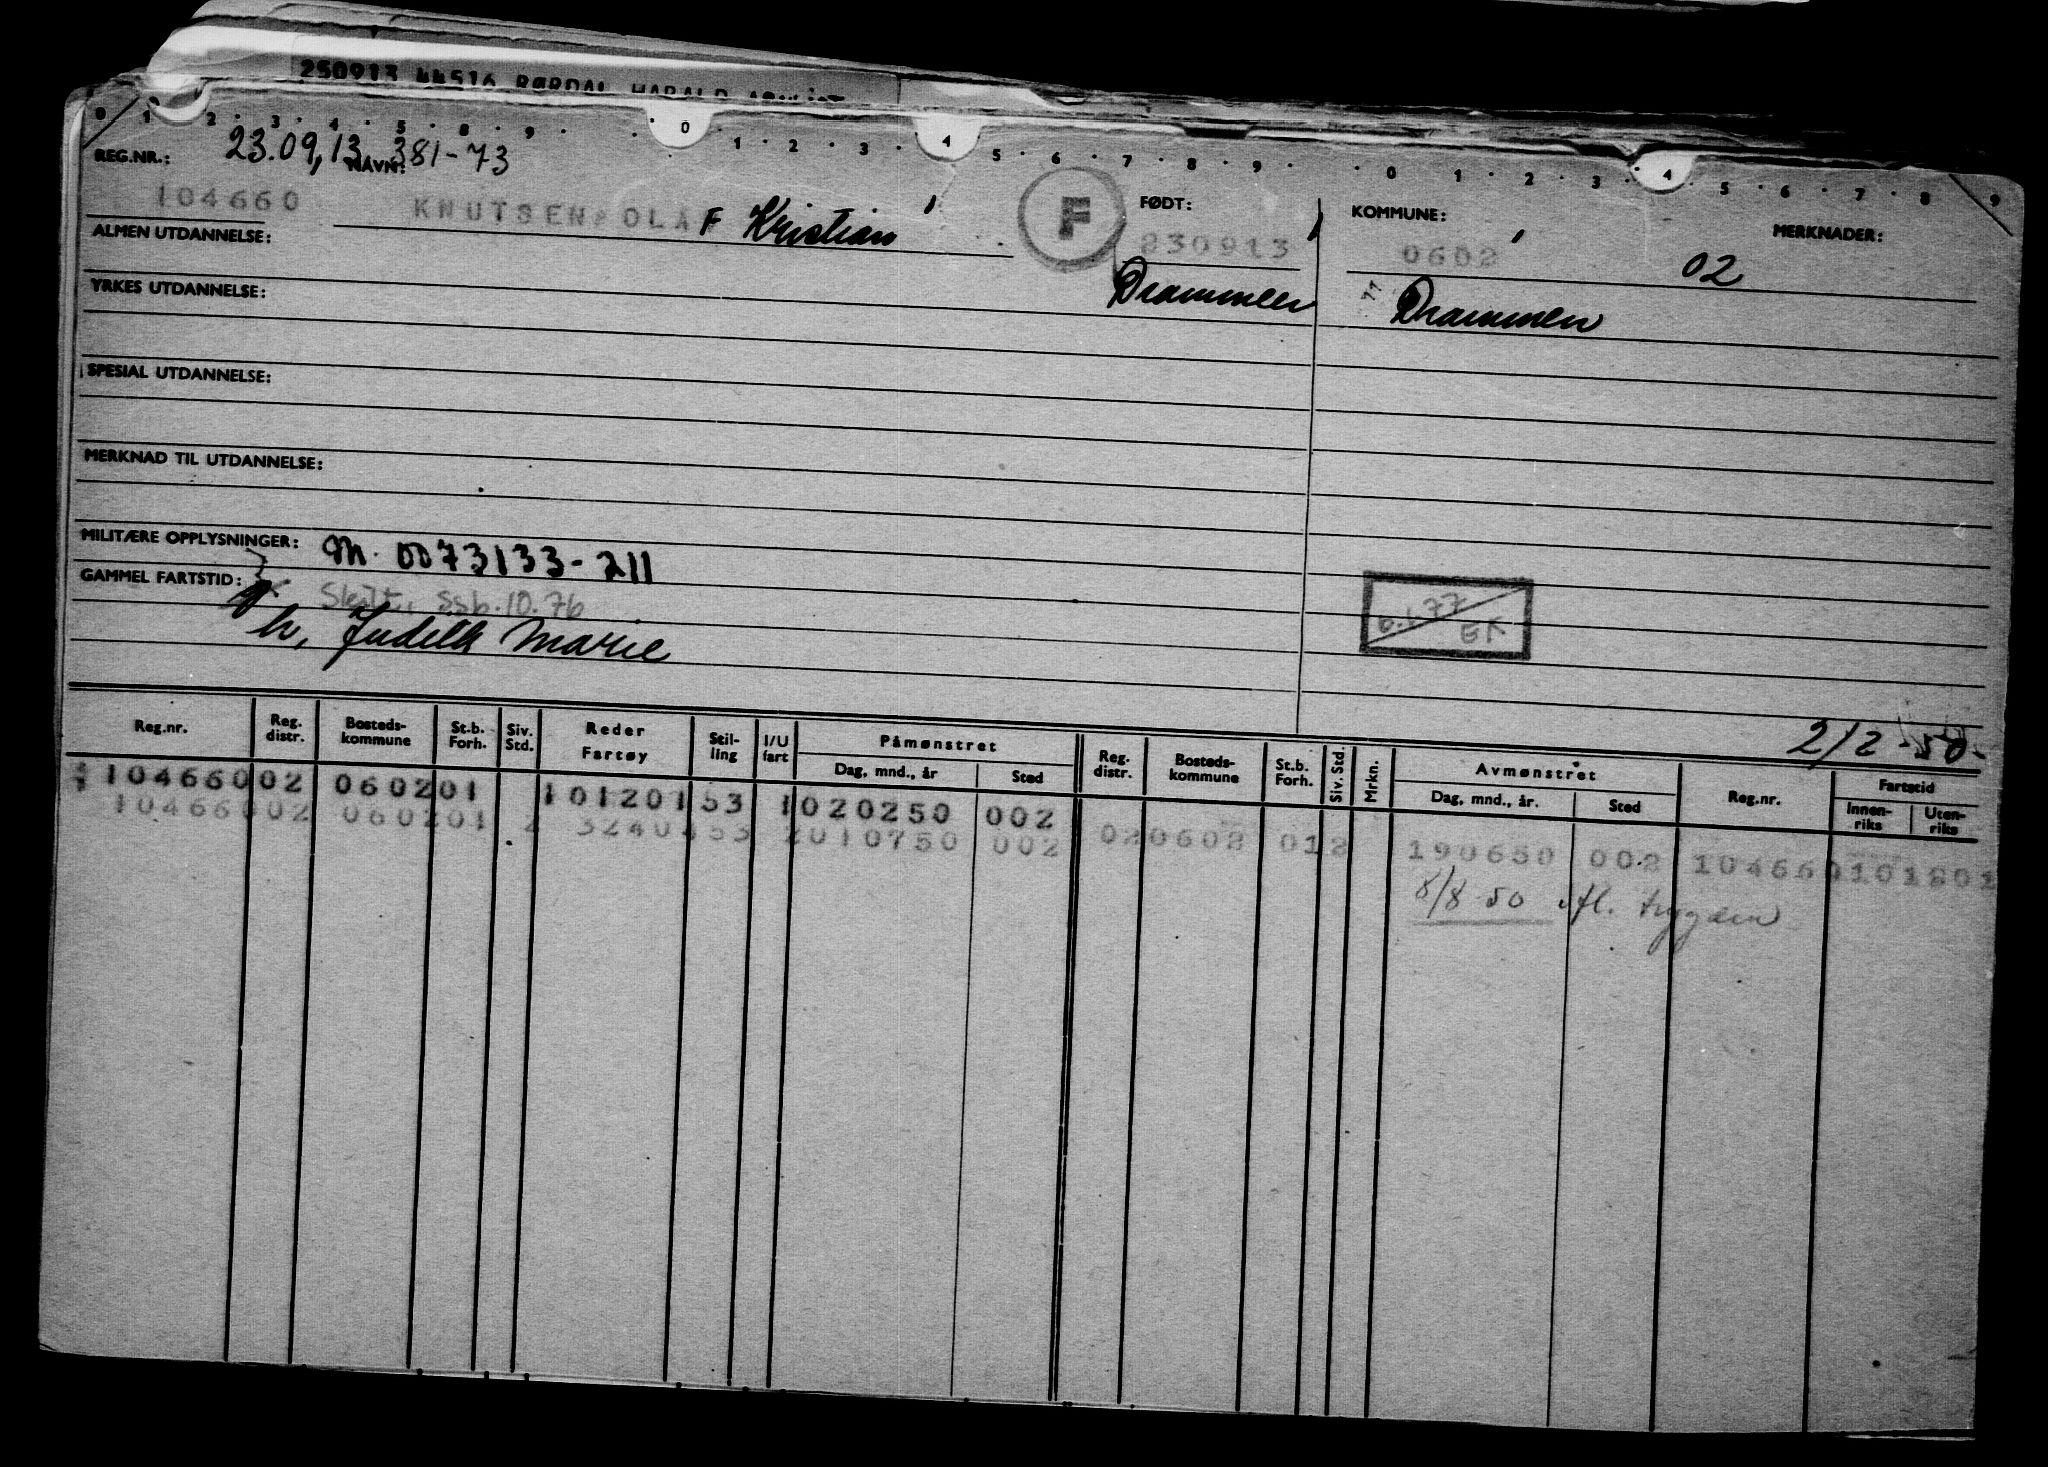 250913 44516 RØRDAL HARALD
0 1 2 3 4 5 8 9 0 1 2 3 4 5 6 7 8 9 0 1 2 3 4 5 6 7 8 9
REG.NR.: 23.09,13 NAVN: 381-73 FØDT: KOMMUNE: MERKNADER:
104660 KNUTSEN OLAF Kristian F 230913 0602 02
ALMEN UTDANNELSE: Drammen Drammen
YRKES UTDANNELSE:
SPESIAL UTDANNELSE:
MERKNAD TIL UTDANNELSE:
MILITÆRE OPPLYSNINGER: M. 0073133-211
GAMMEL FARTSTID: ssb.10.76 6.1.77 EK
h, Judith Marie
2/2-50-
Reg.nr. Reg. distr. Bosteds-kommune St.b. Forh. Siv. Std. Reder Fartøy Stil-ling I/U fart Påmønstret Dag, mnd., år Sted Reg. distr. Bosteds-kommune St.b. Forh. Siv. Std. Mrkn. Avmønstret Dag, mnd., år. Sted Reg.nr. Fartstid Innen-riks Uten-riks
104660 02 0602 01 101201 53 1 020250 002
104660 02 0602 01 2 3240 53 2 010750 002 02 0602 01 2 190650 002 104660 101201
8/8 50 fl. trygden